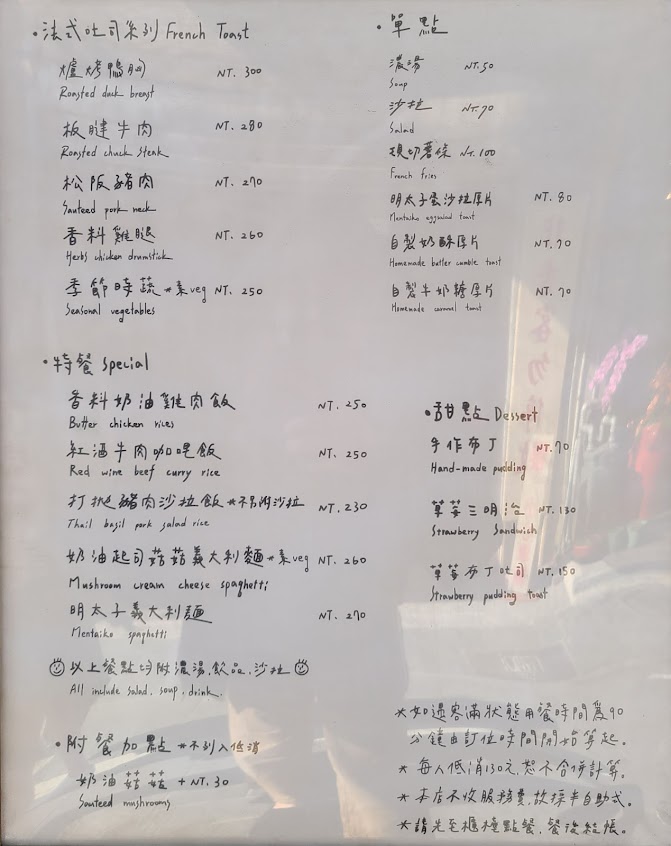 ·法式吐司系列 French Toast
爐烤鴨胸 NT. 300
Roasted duck breast
板腱牛肉 NT. 280
Roasted chuck steak
松阪豬肉 NT. 270
Sauteed pork neck
香料雞腿 NT. 260
Herbs chicken drumstick
季節時蔬 *素veg NT. 250
Seasonal vegetables
·特餐 Special
香料奶油雞肉飯 NT. 250
Butter chicken rices
紅酒牛肉咖哩飯 NT. 250
Red wine beef curry rice
打拋豬肉沙拉飯 *不另附沙拉 NT. 230
Thail basil pork salad rice
奶油起司菇菇義大利麵 *素veg NT. 260
Mushroom cream cheese spaghetti
明太子義大利麵 NT. 270
Mentaiko spaghetti
以上餐點均附濃湯.飲品.沙拉
All include salad. soup. drink.
·附餐加點 *不列入低消
奶油菇菇 + NT. 30
Sauteed mushrooms
·單點
濃湯 NT. 50
Soup
沙拉 NT. 70
Salad
現切薯條 NT. 100
French fries
明太子蛋沙拉厚片 NT. 80
Mentaiko eggsalad toast
自製奶酥厚片 NT. 70
Homemade butter cumble toast
自製牛奶糖厚片 NT. 70
Homemade caramel toast
·甜點 Dessert
手作布丁 NT. 70
Hand-made pudding
草莓三明治 NT. 130
Strawberry Sandwich
草莓布丁吐司 NT. 150
Strawberry pudding toast
*如遇客滿狀態用餐時間為90
分鐘由訂位時間開始算起。
*每人低消130元,恕不合併計算。
*本店不收服務費,故採半自助式。
*請先至櫃檯點餐,餐後結帳。